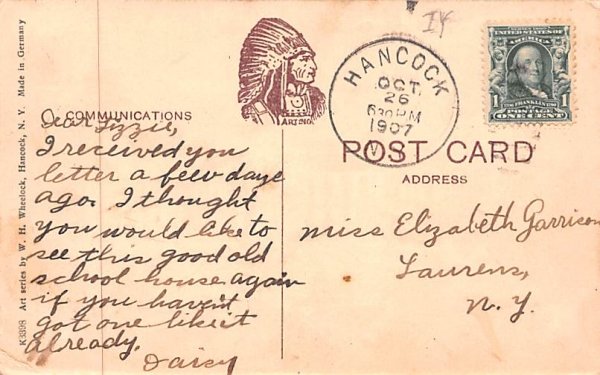 IX
HANCOCK
OCT.
26
630PM
1907
N.Y.
UNITED STATES OF AMERICA
FRANKLIN
1 1
POSTAGE
ONE CENT
ART INO
COMMUNICATIONS
POST CARD
ADDRESS
Dear Lizzie,
I received you
letter a few days
ago. I thought
you would like to
see this good old
school house again
if you havent
got one like it
already.
Daisy
Miss Elizabeth Garrison
Laurens,
N.Y.
K3398 Art series by W. H. Wheelock, Hancock, N. Y. Made in Germany